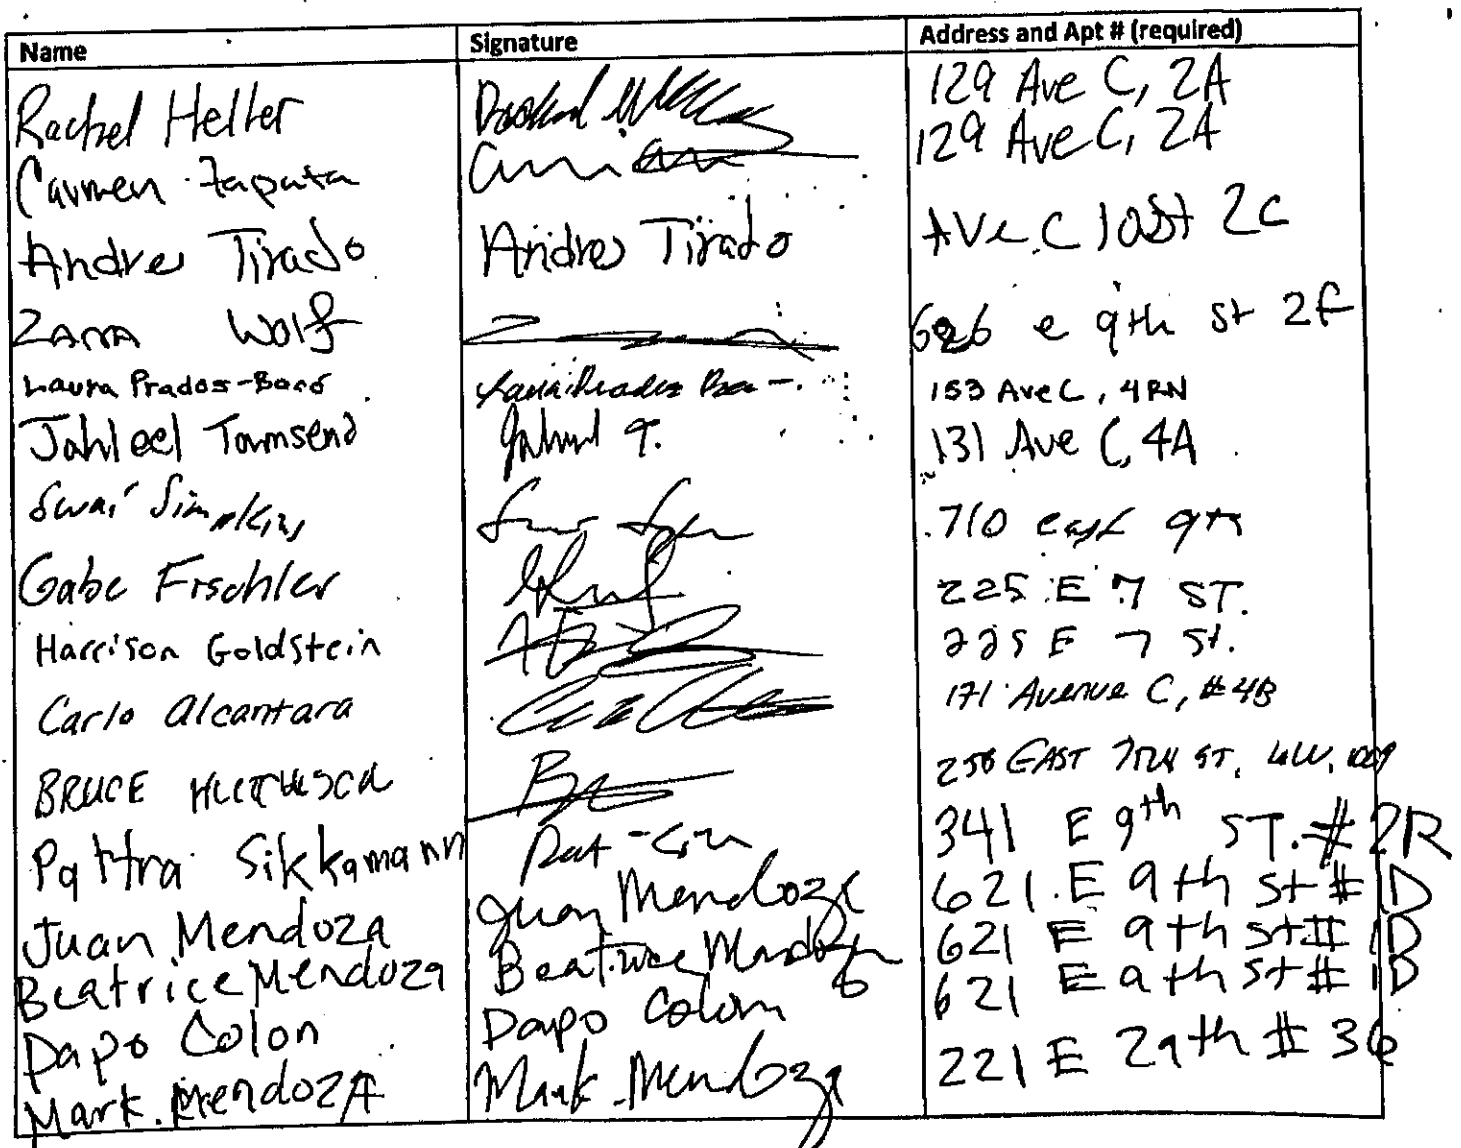 Name Signature Address and Apt # (required)
Rachel Heller 129 Ave C, 2A
Carmen Zapata 129 Ave C, 2A
Andres Tirado Andres Tirado AVe C 2C
ZANA Wolf 626 e 9th st 2F
Laura Prados-Boró 153 Ave C, 4RN
Jahleel Townsend Jahleel T. 131 Ave C, 4A
Simpkins 710 east 9th
Gabe Fischler 225 E 7 ST.
Harrison Goldstein 225 E 7 St.
Carlo Alcantara 171 Avenue C, #4B
BRUCE EAST 7TH ST,
Pattra Sikkamann 341 E 9th ST. #2R
Juan Mendoza Juan Mendoza 621 E 9th St # 1D
Beatrice Mendoza Beatrice Mendoza 621 E 9th St # 1D
Dapo Colon Dapo Colon 621 E 9th St # 1D
Mark. MendozA Mark Mendoza 221 E 29th # 36